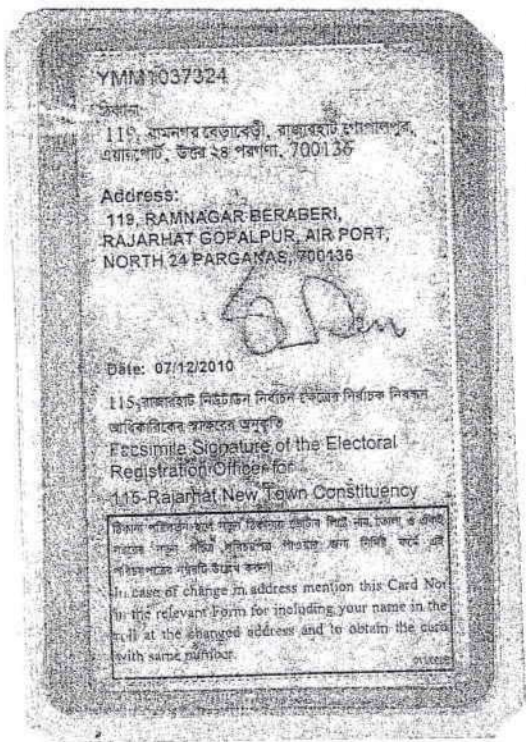 YMM1037324
ঠিকানা:
119, রামনগর বেড়াবেড়ী, রাজারহাট গোপালপুর,
এয়ারপোর্ট, উত্তর ২৪ পরগণা, 700136
Address:
119, RAMNAGAR BERABERI,
RAJARHAT GOPALPUR, AIR PORT,
NORTH 24 PARGANAS, 700136
Date: 07/12/2010
115-রাজারহাট নিউটাউন নির্বাচন ক্ষেত্রের নির্বাচক নিবন্ধন
আধিকারিকের স্বাক্ষরের অনুকৃতি
Facsimile Signature of the Electoral
Registration Officer for
115-Rajarhat New Town Constituency
ঠিকানা পরিবর্তন হলে নতুন ঠিকানায় ভোটার লিস্টে নাম তোলা ও একই
নম্বরের নতুন সচিত্র পরিচয়পত্র পাওয়ার জন্য নির্দিষ্ট ফর্মে এই
পরিচয়পত্রের নম্বরটি উল্লেখ করুন।
In case of change in address mention this Card No.
in the relevant Form for including your name in the
roll at the changed address and to obtain the card
with same number.